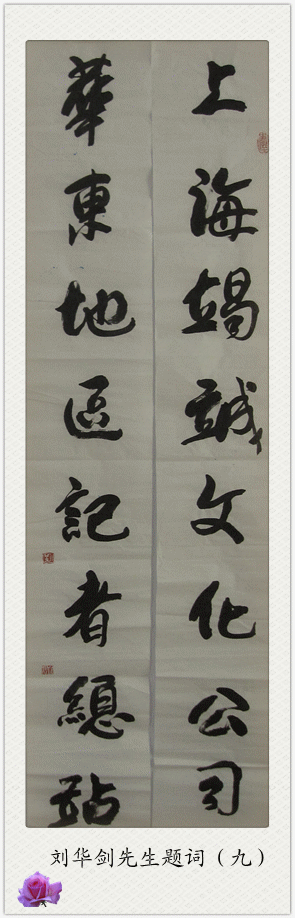 上海竭誠文化公司
華東地區記者總站
刘华剑先生题词（九）